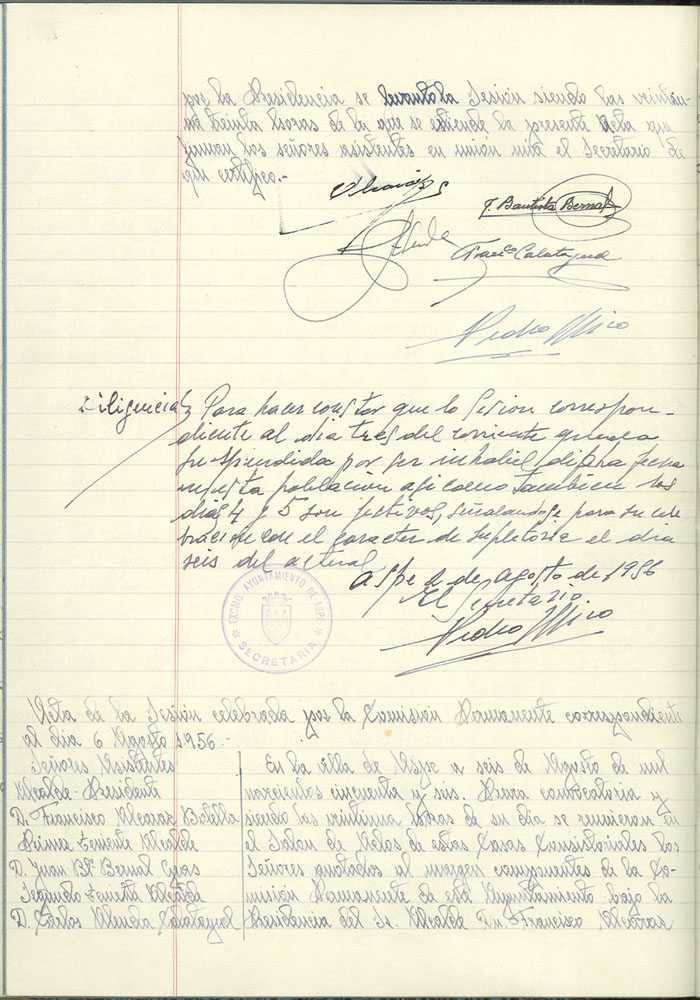 por la Presidencia se levanto la Sesión siendo las veintiu-
na treinta horas de la que se extiende la presente Acta que
firman los señores asistentes en unión mia el Secretario de
que certifico.-
J. Bautista Bernal
Franco Calatayud
Pedro Mico
Diligencia Para hacer constar que la Sesion correspon-
diente al dia tres del corriente queda
suspendida por ser inhabil dicha fecha
en esta población asi como tambien los
dias 4 y 5 son festivos, señalandose para su cele
bración con el caracter de supletoria el dia
seis del actual
Aspe 2 de Agosto de 1956
El Secretario
Pedro Mico
EXCMO. AYUNTAMIENTO DE ASPE
* SECRETARIA *
Acta de la Sesión celebrada por la Comisión Permanente correspondiente
al dia 6 Agosto 1956.-
Señores Asistentes
Alcalde-Presidente
D. Francisco Alcaraz Botella
Primer Teniente Alcalde
D. Juan Bta Bernal Gras
Segundo Teniente Alcalde
D. Carlos Almela Calatayud
En la villa de Aspe a seis de Agosto de mil
novecientos cincuenta y seis. Previa convocatoria y
siendo las veintiuna horas de su dia se reunieron en
el Salon de Actos de estas Casas Consistoriales los
Señores anotados al margen componentes de la Co-
misión Permanente de este Ayuntamiento bajo la
Presidencia del Sr. Alcalde Dn. Francisco Alcaraz